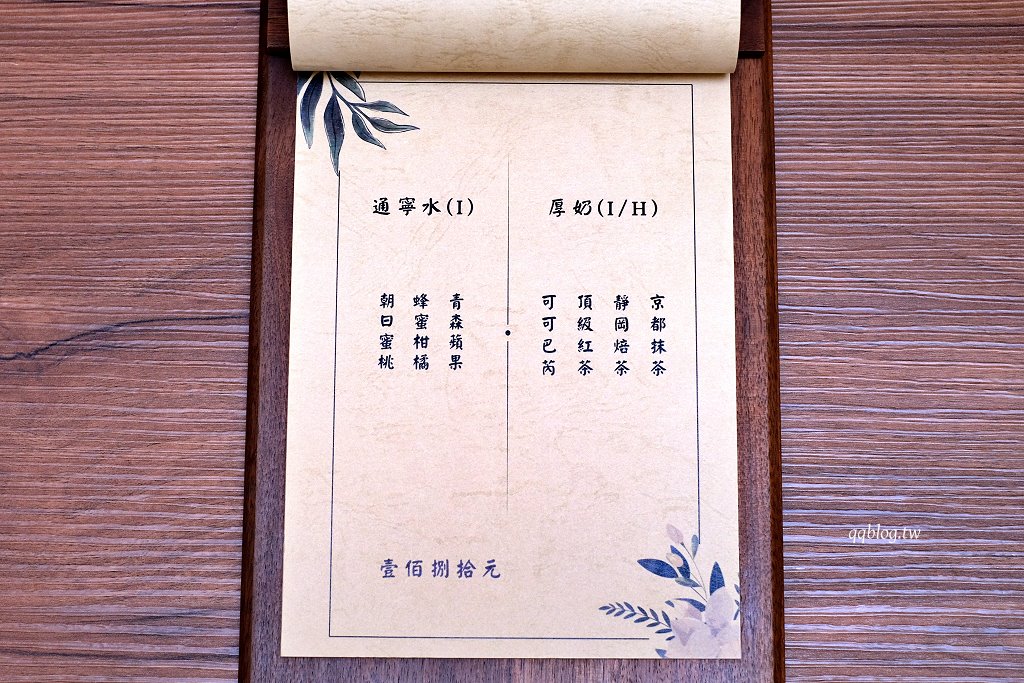 厚奶(I/H)
京都抹茶
靜岡焙茶
頂級紅茶
可可巴芮
通寧水(I)
青森蘋果
蜂蜜柑橘
朝日蜜桃
壹佰捌拾元
qqblog.tw